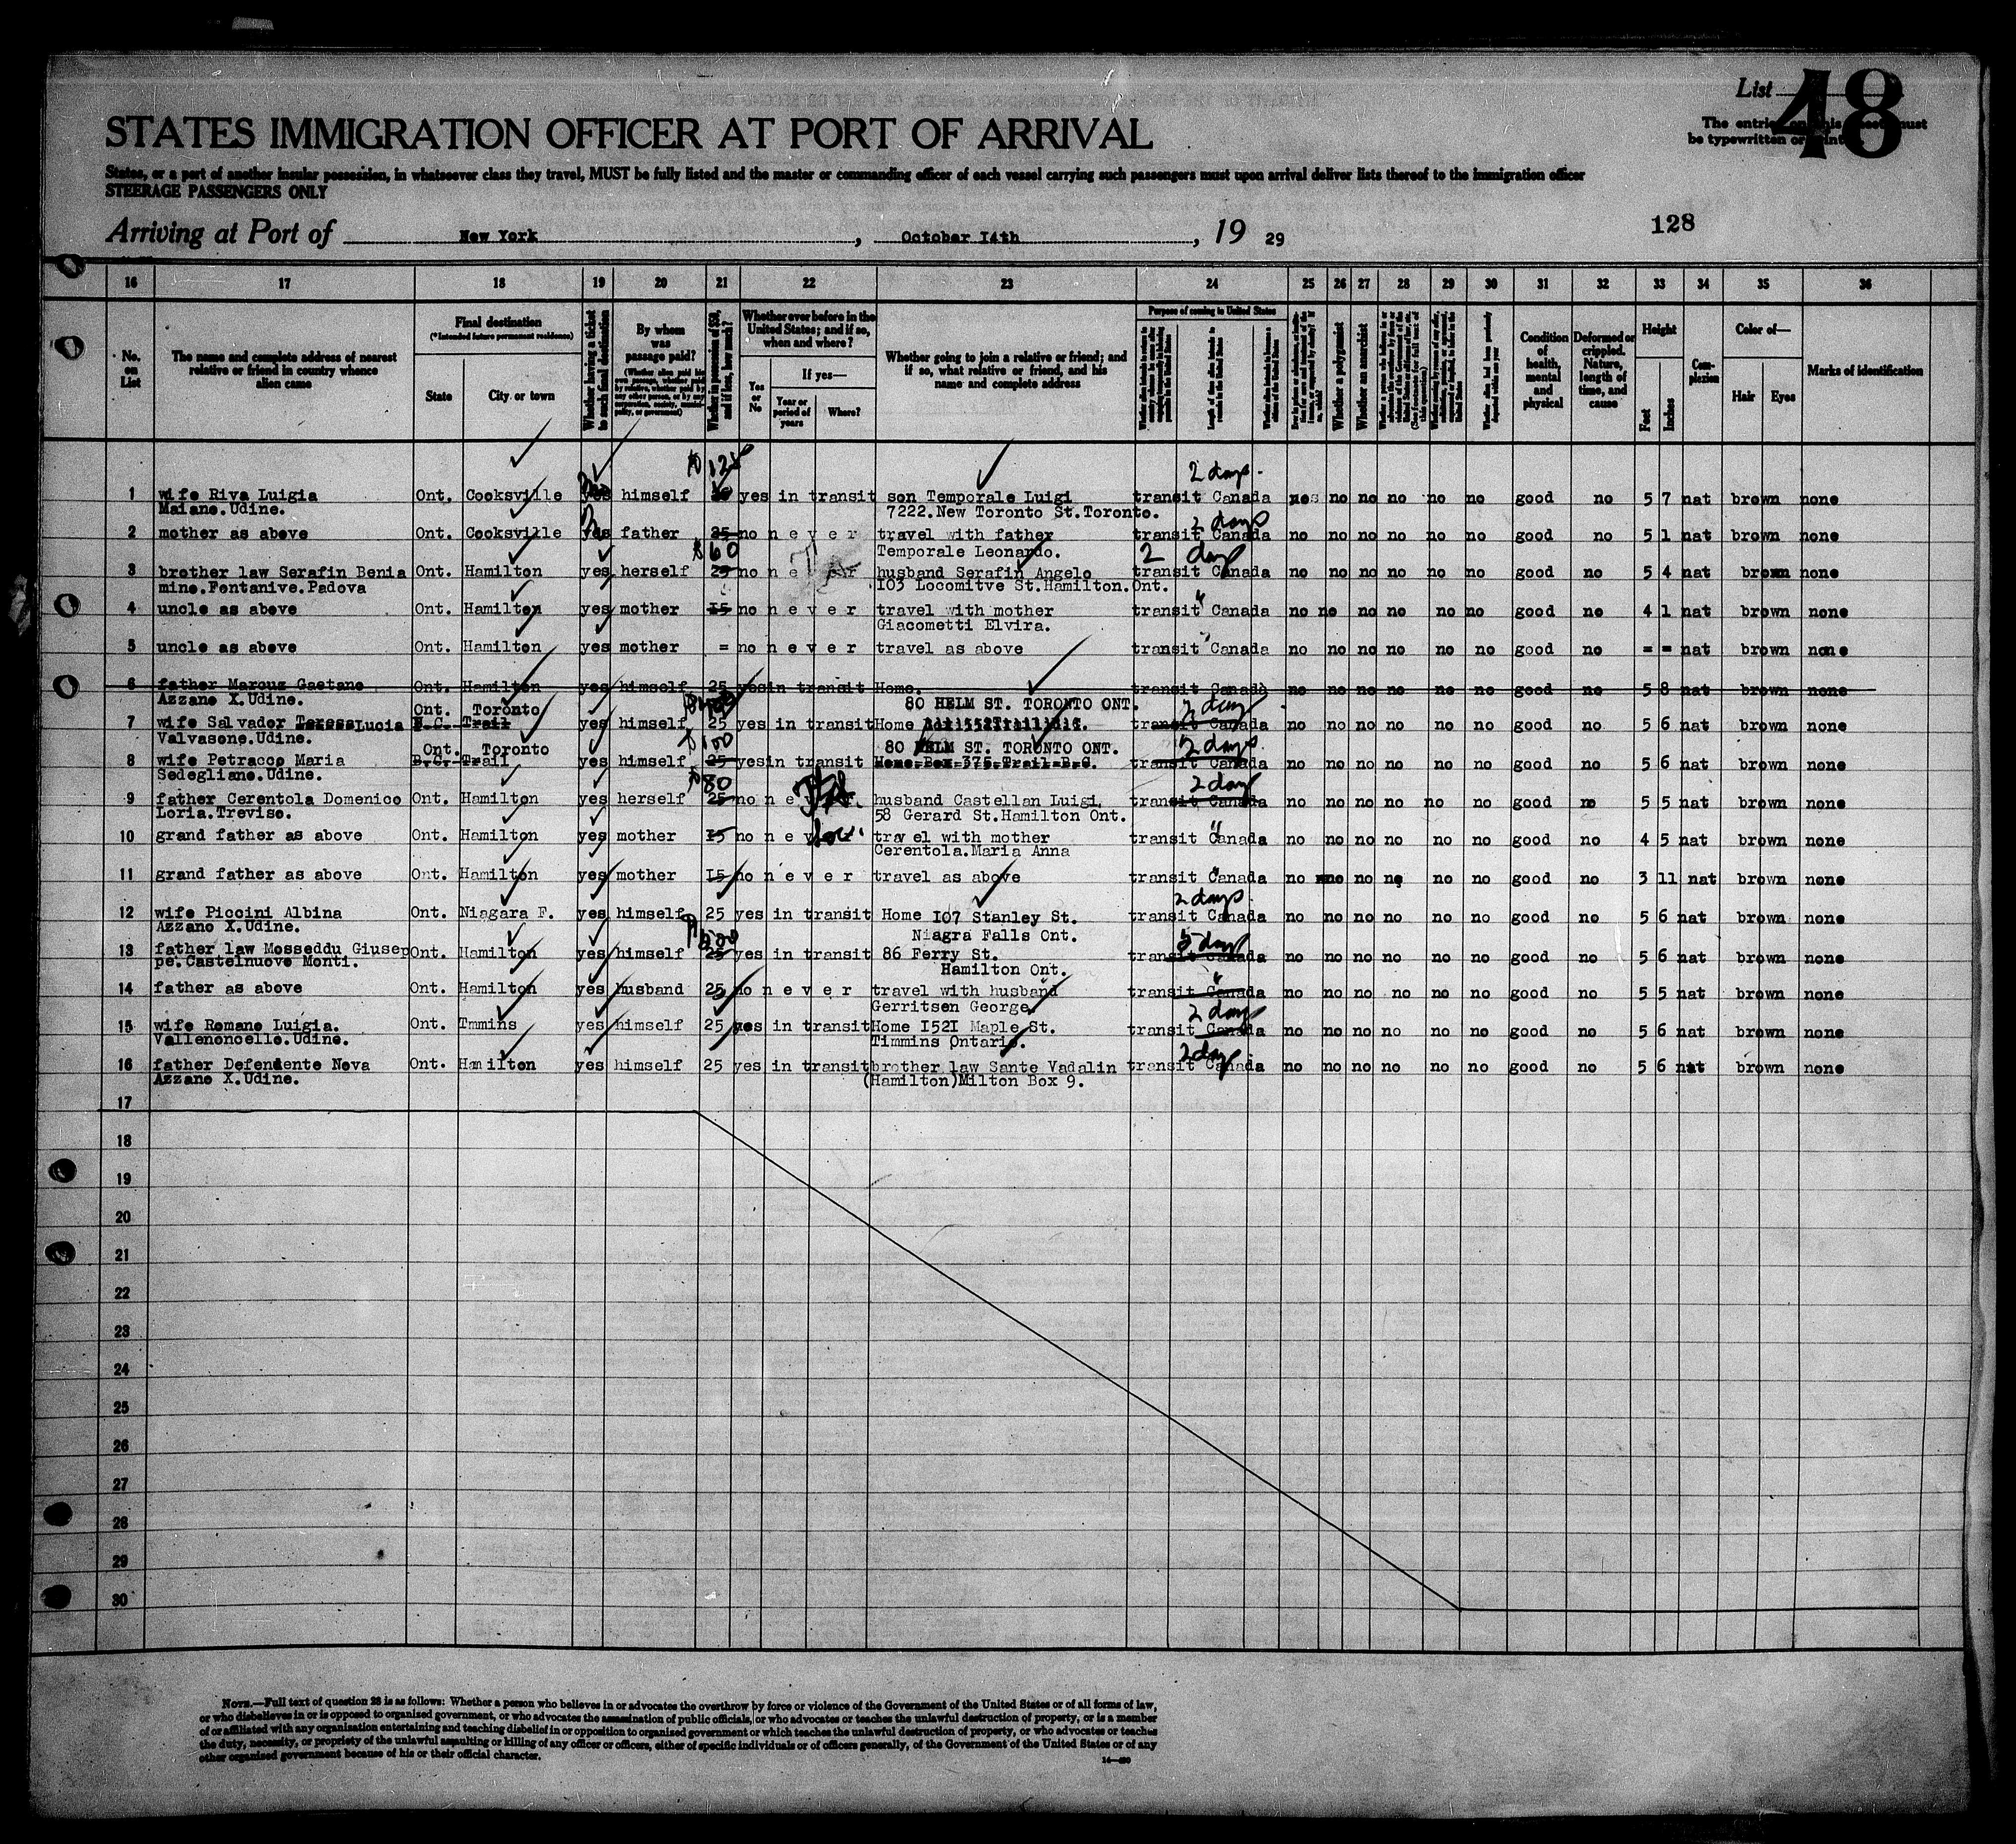 List 48
The entries on this sheet must
be typewritten or printed
STATES IMMIGRATION OFFICER AT PORT OF ARRIVAL
States, or a port of another insular possession, in whatsoever class they travel, MUST be fully listed and the master or commanding officer of each vessel carrying such passengers must upon arrival deliver lists thereof to the immigration officer
STEERAGE PASSENGERS ONLY
Arriving at Port of New York, October I4th, 19 29
128
16 17 18 19 20 21 22 23 24 25 26 27 28 29 30 31 32 33 34 35 36
No. on List
The name and complete address of nearest relative or friend in country whence alien came
Final destination
(*Intended future permanent residence)
State
City or town
Whether having a ticket to such final destination
By whom was passage paid?
Whether in possession of $50, and if less, how much?
Whether ever before in the United States; and if so, when and where?
Yes or No
If yes—
Year or period of years
Where?
Whether going to join a relative or friend; and if so, what relative or friend, and his name and complete address
Purpose of coming to United States
Whether a polygamist
Whether an anarchist
Condition of health, mental and physical
Deformed or crippled. Nature, length of time, and cause
Height
Feet
Inches
Complexion
Color of—
Hair
Eyes
Marks of identification
$ 125 2 days
1 wife Riva Luigia Ont. Cooksville yes himself yes in transit son Temporale Luigi transit Canada no no no no no good no 5 7 nat brown none
Maiano.Udine. 7222.New Toronto St.Toronto.
2 days
2 mother as above Ont. Cooksville yes father 25 no n e v e r travel with father transit Canada no no no no no no good no 5 1 nat brown none
$60 Temporale Leonardo. 2 days
3 brother law Serafin Benia Ont. Hamilton yes herself 25 no husband Serafin Angelo transit Canada no no no no no no good no 5 4 nat brown none
mino.Fontanive.Padova IO3 Locomitve St.Hamilton.Ont.
4 uncle as above Ont. Hamilton yes mother I5 no n e v e r travel with mother transit " Canada no no no no no no good no 4 1 nat brown none
Giacometti Elvira.
5 uncle as above Ont. Hamilton yes mother = no n e v e r travel as above transit " Canada no no no no no no good no = = nat brown none
6 father Marcuz Gaetano Ont. Hamilton yes himself 25 yes in transit Home. transit Canada no no no no no no good no 5 8 nat brown none
Azzano X.Udine.
Ont. Toronto 80 HELM ST. TORONTO ONT. 2 days
7 wife Salvador Teresa Lucia B.C. Trail yes himself 25 yes in transit Home transit Canada no no no no no no good no 5 6 nat brown none
Valvasone.Udine.
Ont. Toronto $100 80 HELM ST. TORONTO ONT. 2 days
8 wife Petracco Maria B.C. Trail yes himself 25 yes in transit Home Box 375 Trail B.C. transit Canada no no no no no no good no 5 6 nat brown none
Sedegliano.Udine.
$80 2 days
9 father Cerentola Domenico Ont. Hamilton yes herself 25 no husband Castellan Luigi. transit Canada no no no no no no good no 5 5 nat brown none
Loria.Treviso. 58 Gerard St.Hamilton Ont.
10 grand father as above Ont. Hamilton yes mother I5 no travel with mother transit " Canada no no no no no no good no 4 5 nat brown none
Cerentola.Maria Anna
11 grand father as above Ont. Hamilton yes mother I5 no n e v e r travel as above transit " Canada no no no no no no good no 3 11 nat brown none
2 days
12 wife Piccini Albina Ont. Niagara F. yes himself 25 yes in transit Home IO7 Stanley St. transit Canada no no no no no no good no 5 6 nat brown none
Azzano X.Udine. Niagra Falls Ont.
$500 5 days
13 father law Mosseddu Giusep Ont. Hamilton yes himself 25 yes in transit 86 Ferry St. transit Canada no no no no no no good no 5 6 nat brown none
pe.Castelnuovo Monti. Hamilton Ont.
14 father as above Ont. Hamilton yes husband 25 no n e v e r travel with husband transit " Canada no no no no no no good no 5 5 nat brown none
Gerritsen George 2 days
15 wife Romano Luigia. Ont. Tmmins yes himself 25 yes in transit Home I52I Maple St. transit Canada no no no no no no good no 5 6 nat brown none
Vallenoncello.Udine. Timmins Ontario.
2 days
16 father Defendente Neva Ont. Hamilton yes himself 25 yes in transit brother law Sante Vadalin transit Canada no no no no no no good no 5 6 nat brown none
Azzano X.Udine. (Hamilton)Milton Box 9.
17
18
19
20
21
22
23
24
25
26
27
28
29
30
NOTE.—Full text of question 28 is as follows: Whether a person who believes in or advocates the overthrow by force or violence of the Government of the United States or of all forms of law,
or who disbelieves in or is opposed to organized government, or who advocates the assassination of public officials, or who advocates or teaches the unlawful destruction of property, or is a member
of or affiliated with any organization entertaining and teaching disbelief in or opposition to organized government or which teaches the unlawful destruction of property, or who advocates or teaches
the duty, necessity, or propriety of the unlawful assaulting or killing of any officer or officers, either of specific individuals or of officers generally, of the Government of the United States or of any
other organized government because of his or their official character.